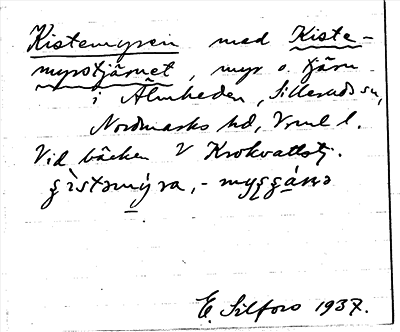 Kistemyren med Kiste-
myrstjärnet, myr o. tjärn
i Älmheden, Silleruds sn,
Nordmarks hd, Vrml l.
Vid bäcken V Krokvattstj.
E. Silfors 1937.